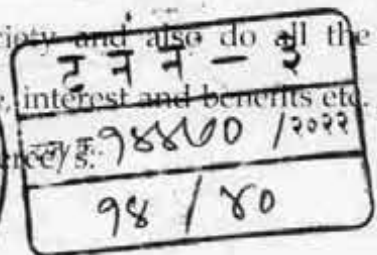 ciety and also do all the
ट न न - ३
e, interest and benefits etc.
१४४७० /२०२२
१४ / ४०